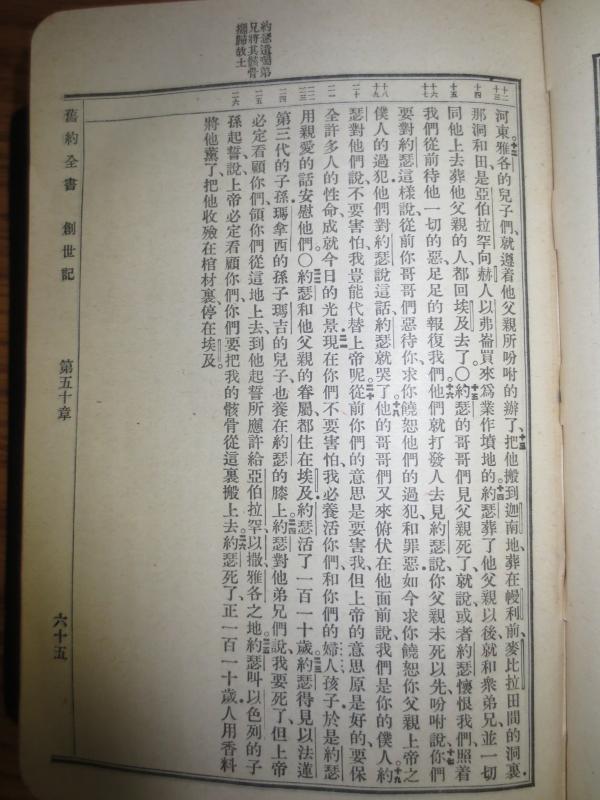 約瑟遺囑弟
兄將其骸骨
搬歸故土
十二 十三 十四 十五 十六 十七 十八 十九 二十 二一 二二 二三 二四 二五 二六
河東。十二雅各的兒子們、就遵着他父親所吩咐的辦了、十三把他搬到迦南地、葬在幔利前、麥比拉田間的洞裏、
那洞和田、是亞伯拉罕向赫人以弗崙買來爲業作墳地的。十四約瑟葬了他父親以後、就和衆弟兄、並一切
同他上去葬他父親的人、都回埃及去了。〇十五約瑟的哥哥們見父親死了、就說、或者約瑟懷恨我們、照着
我們從前待他一切的惡、足足的報復我們。十六他們就打發人去見約瑟說、你父親未死以先、吩咐說、十七你們
要對約瑟這樣說、從前你哥哥們惡待你、求你饒恕他們的過犯和罪惡。如今求你饒恕你父親上帝之
僕人的過犯。他們對約瑟說這話、約瑟就哭了。十八他的哥哥們又來俯伏在他面前說、我們是你的僕人。十九約
瑟對他們說、不要害怕、我豈能代替上帝呢。二十從前你們的意思是要害我、但上帝的意思原是好的、要保
全許多人的性命、成就今日的光景。二一現在你們不要害怕、我必養活你們、和你們的婦人孩子。於是約瑟
用親愛的話安慰他們。〇二二約瑟和他父親的眷屬、都住在埃及。約瑟活了一百一十歲。二三約瑟得見以法蓮
第三代的子孫。瑪拿西的孫子瑪吉的兒子、也養在約瑟的膝上。二四約瑟對他弟兄們說、我要死了、但上帝
必定看顧你們、領你們從這地上去、到他起誓所應許給亞伯拉罕、以撒、雅各之地。二五約瑟叫以色列的子
孫起誓說、上帝必定看顧你們、你們要把我的骸骨從這裏搬上去。二六約瑟死了、正一百一十歲、人用香料
將他薰了、把他收殮在棺材裏、停在埃及。
舊約全書 創世記 第五十章 六十五